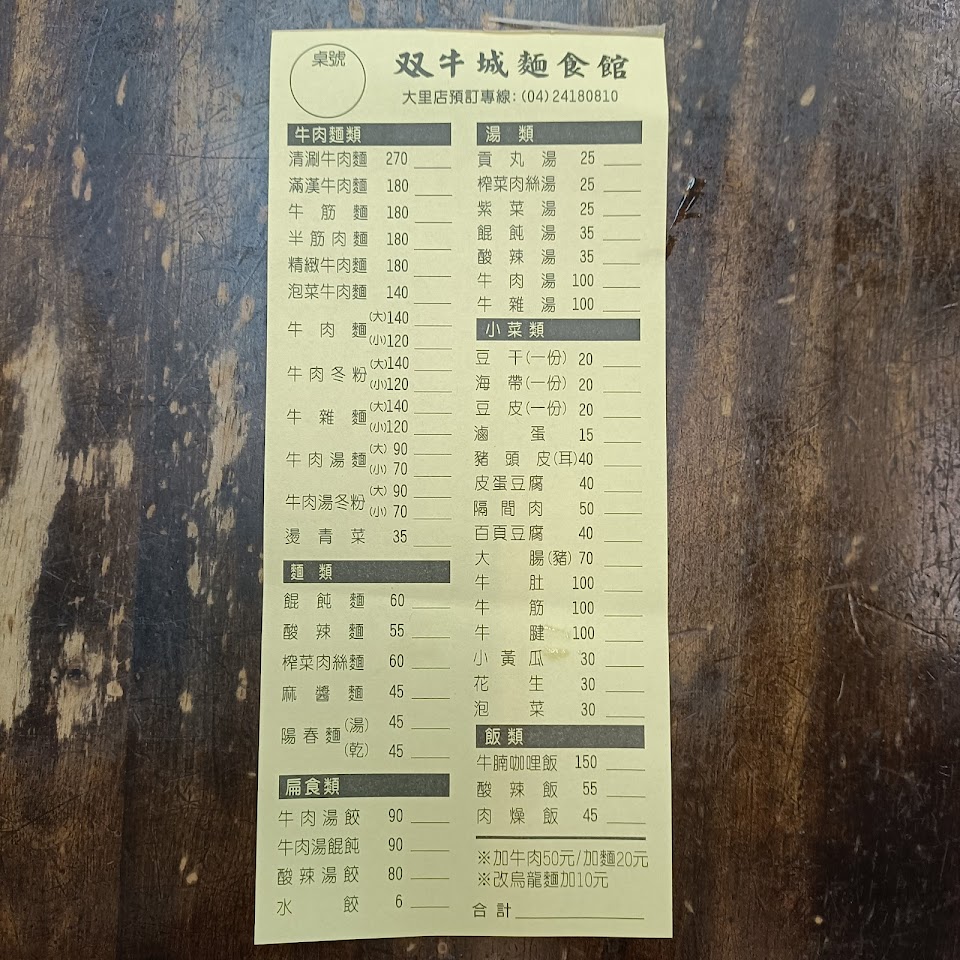 桌號
双牛城麵食館
大里店預訂專線:(04)24180810
牛肉麵類
清涮牛肉麵 270
滿漢牛肉麵 180
牛筋麵 180
半筋肉麵 180
精緻牛肉麵 180
泡菜牛肉麵 140
牛肉麵 (大)140
(小)120
牛肉冬粉 (大)140
(小)120
牛雜麵 (大)140
(小)120
牛肉湯麵 (大) 90
(小) 70
牛肉湯冬粉 (大) 90
(小) 70
燙青菜 35
麵類
餛飩麵 60
酸辣麵 55
榨菜肉絲麵 60
麻醬麵 45
陽春麵 (湯) 45
(乾) 45
扁食類
牛肉湯餃 90
牛肉湯餛飩 90
酸辣湯餃 80
水餃 6
湯類
貢丸湯 25
榨菜肉絲湯 25
紫菜湯 25
餛飩湯 35
酸辣湯 35
牛肉湯 100
牛雜湯 100
小菜類
豆干(一份) 20
海帶(一份) 20
豆皮(一份) 20
滷蛋 15
豬頭皮(耳)40
皮蛋豆腐 40
隔間肉 50
百頁豆腐 40
大腸(豬) 70
牛肚 100
牛筋 100
牛腱 100
小黃瓜 30
花生 30
泡菜 30
飯類
牛腩咖哩飯 150
酸辣飯 55
肉燥飯 45
※加牛肉50元/加麵20元
※改烏龍麵加10元
合計